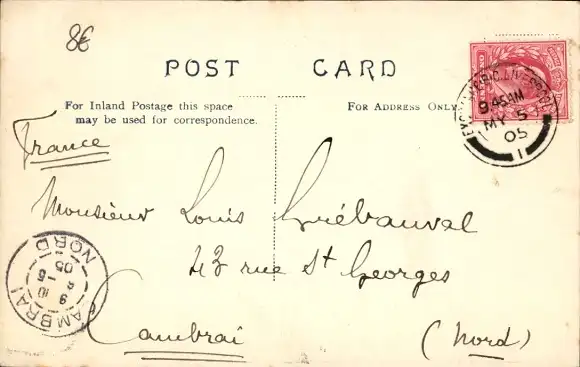 8€
POST CARD
For Inland Postage this space
may be used for correspondence.
For Address Only.
9 45 AM
MY 5
05
1
France
Monsieur Louis Griébauval
43 rue St Georges
Cambrai (Nord)
CAMBRAI
NORD
9
10 - 5
05